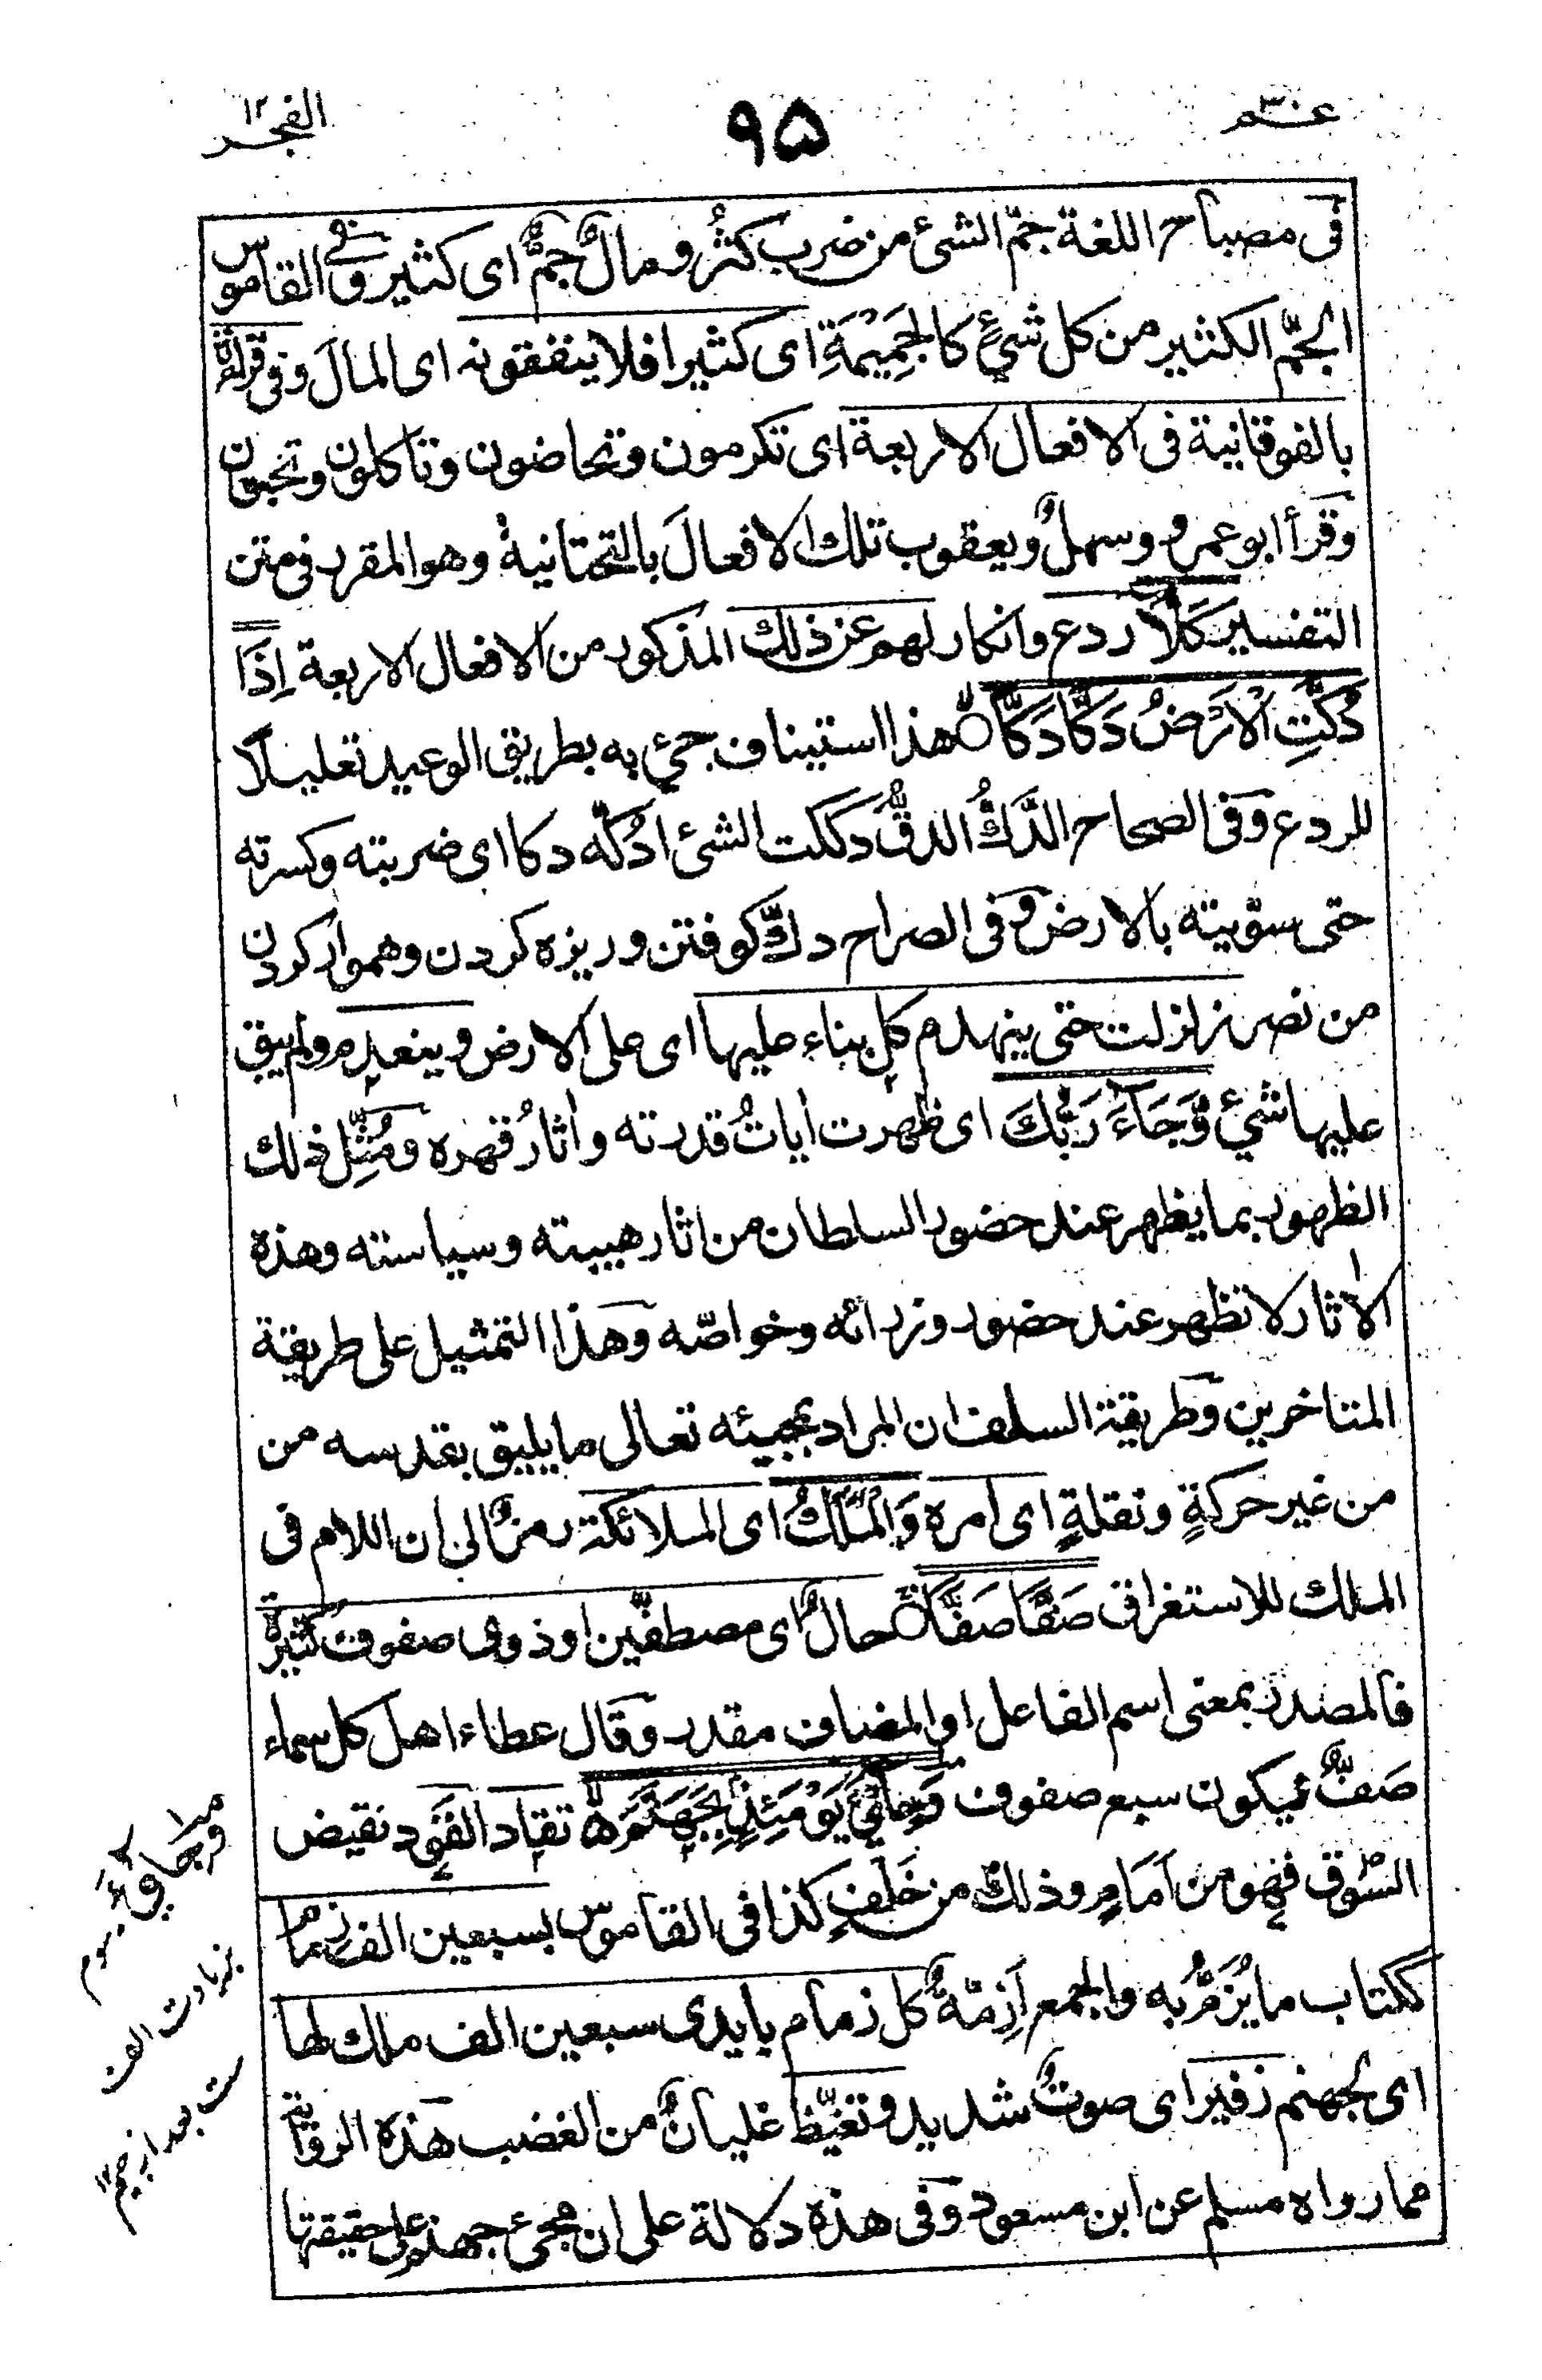 عم ٣٠
٩٥
الفجر ١٢
فى مصباح اللغة جمّ الشئ من ضرب كثُر و مالٌ جمٌّ اى كثير و فى القاموس
الجمّ الكثير من كل شئٍ كالجَمِيْمَةِ اى كثيرا فلا ينفقونه اى المالَ وفى قراءة
بالفوقانية فى الافعال الاربعة اى تكرمون وتحاضون وتاكلون وتحبون
وقرأ ابو عمرو وسهلٌ ويعقوب تلك الافعالَ بالتحتانية وهو المقرر فى متن
التفسير كَلَّا ردع وانكار لهم عن ذلك المذكور من الافعال الاربعة اِذَا
دُكَّتِ الْاَرْضُ دَكًّا دَكًّا هذا استيناف جئ به بطريق الوعيد تعليلا
للردع وفى الصحاح الدَّكُّ الدقُّ دككت الشئ ادُكُّه دكا اى ضربته وكسرته
حتى سوّيته بالارض وفى الصراح دكٌّ كوفتن وريزه كردن وهموار كردن
من نصر زلزلت حتى ينهدم كل بناء عليها اى على الارض وينعدم ولم يبق
عليها شئ وَّجَآءَ رَبُّكَ اى ظهرت اٰياتُ قدرته واٰثارُ قهره ومُثِّل ذلك
الظهور بما يظهر عند حضور السلطان من اٰثار هيبته وسياسته وهذه
الاٰثار لا تظهر عند حضور وزرائه وخواصّه وهذا التمثيل على طريقة
المتاخرين وطريقة السلف ان المراد بمجيئه تعالى ما يليق بقدسه من
من غير حركةٍ ونقلةٍ اى امره وَالْمَلَكُ اى الملائكة رمزٌ الى ان اللام فى
الملك للاستغراق صَفًّا صَفًّا حالٌ اى مصطفّين او ذوى صفوف كثيرة
فالمصدر بمعنى اسم الفاعل او المضاف مقدر وقال عطاء اهل كل سماء
صَفٌّ فيكون سبع صفوف وَجِايْٓءَ يَوْمَئِذٍۭ بِجَهَنَّمَ تقاد القَود نقيض
السَّوق فهو من اَمَامٍ وذلك من خَلْفٍ كذا فى القاموس بسبعين الف زمام
ككتاب ما يُزَمُّ به والجمع اَزِمَّةٌ كل زمام بايدى سبعين الف ملك لها
اى لجهنم زفير اى صوتٌ شديد وتغيّظ غليانٌ من الغضب هذه الرواية
مما رواه مسلم عن ابن مسعود وفى هذه دلالة على ان مجئ جهنم على حقيقتها
بزيادت الف
ست بعد از جيم ١٢